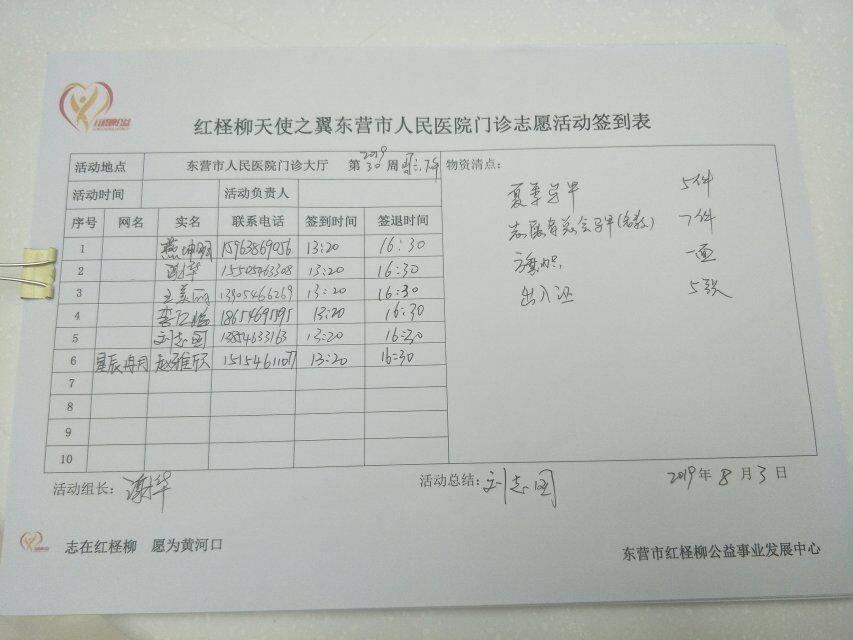 红柽柳公益
红柽柳天使之翼东营市人民医院门诊志愿活动签到表
活动地点 东营市人民医院门诊大厅 第 2019 30 周 下午 物资清点:
活动时间 活动负责人
序号 网名 实名 联系电话 签到时间 签退时间
1 15963869056 13:20 16:30
2 谢华 15505463308 13:20 16:30
3 王美丽 13905466269 13:20 16:30
4 18654695195 13:20 16:30
5 刘志国 13854633163 13:20 16:30
6 星辰冉冉 赵雅欣 15154611077 13:20 16:30
7
8
9
10
夏季马甲 5件
志愿者总会马甲 7件
旗帜 一面
出入证 5张
活动组长: 谢华 活动总结: 刘志国 2019 年 8 月 3 日
志在红柽柳 愿为黄河口
东营市红柽柳公益事业发展中心